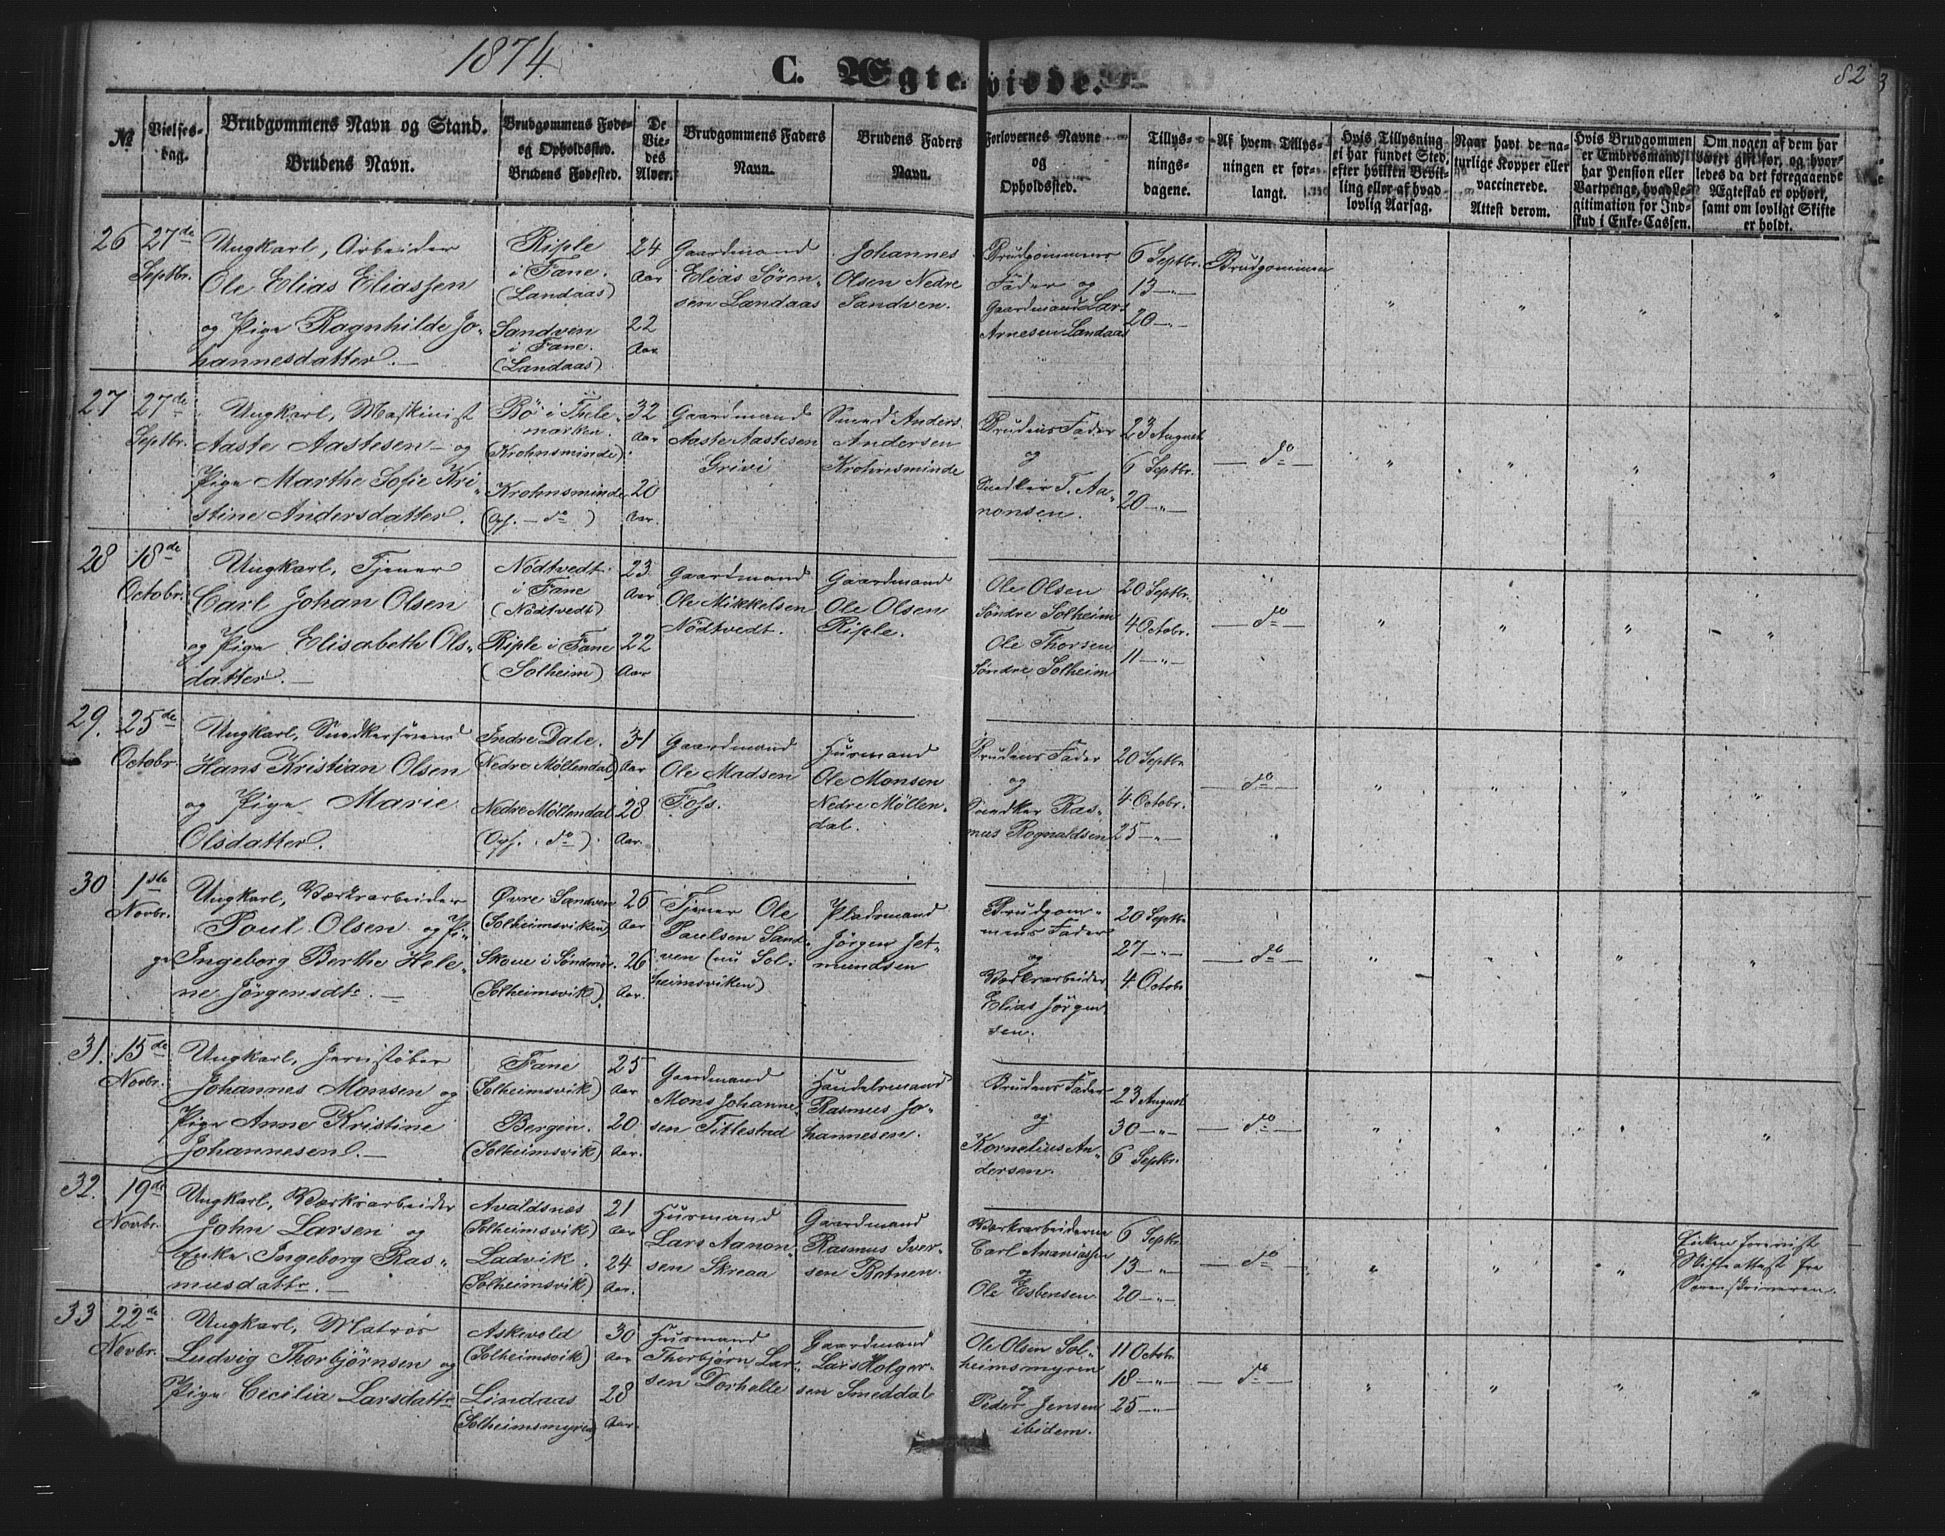 1874
82
C. Ægteviede.
№
Vielses-
dag.
Brudgommens Navn og Stand.
Brudens Navn.
Brudgommens Føde-
og Opholdssted.
Brudens Fødested.
De
Vie-
des
Alder.
Brudgommens Faders
Navn.
Brudens Faders
Navn.
Forlovernes Navne
og
Opholdssted.
Tillys-
nings-
dagene.
Af hvem Tillys-
ningen er for-
langt.
Hvis Tillysning
ei har fundet Sted,
efter hvilken Bevil-
ling eller af hvad
lovlig Aarsag.
Naar havt de na-
turlige Kopper eller
vaccinerede.
Attest derom.
Hvis Brudgommen
er Embedsmand,
har Pension eller
Vartpenge, hvad Le-
gitimation for Ind-
skud i Enke-Cassen.
Om nogen af dem har
været gift før, og hvor-
ledes da det foregaaende
Ægteskab er ophørt,
samt om lovligt Skifte
er holdt.
26
27de
Septbr.
Ungkarl, Arbeider
Ole Elias Eliassen
og Pige Ragnhilde Jo-
hannesdatter.
Riple
i Fane.
(Landaas)
Sandven
i Fane.
(Landaas)
24
Aar
22
Aar
Gaardmand
Elias Sören-
sen Landaas
Johannes
Olsen Nedre
Sandven.
Brudgommens
Fader og
Gaardmand Lars
Arnesen Landaas
6 Septbr.
13 — " —
20 — " —
Brudgommen
27
27de
Septbr.
Ungkarl, Maskinist
Aaste Aastesen og
Pige Marthe Sofie Kri-
stine Andersdatter.
Bö i Thele-
marken.
(Krohnsminde)
Krohnsminde
(Oph. do)
32
Aar
20
Aar.
Gaardmand
Aaste Aastesen
Grivi
Smed Anders
Andersen
Krohnsminde
Brudens Fader
og
Snedker T. Aa-
nonsen.
23 August
6 Septbr.
20 — " —
— do —
28
18de
Octobr.
Ungkarl, Tjener
Carl Johan Olsen
og Pige Elisabeth Ols-
datter.
Nödtvedt
i Fane
(Nödtvedt)
Riple i Fane
(Solheim)
23
Aar
22
Aar
Gaardmand
Ole Mikkelsen
Nödtvedt.
Gaardmand
Ole Olsen
Riple.
Ole Olsen
Söndre Solheim
Ole Thorsen
Söndre Solheim
20 Septbr.
4 Octobr.
11 — " —
— do —
29.
25de
Octobr.
Ungkarl, Snedkersvend
Hans Kristian Olsen
og Pige Marie
Olsdatter.
Indre Dale.
(Nedre Möllendal)
Nedre Möllendal
(Oph. do)
31
Aar
28
Aar.
Gaardmand
Ole Madsen
Foss.
Husmand
Ole Monsen
Nedre Möllen-
dal.
Brudens Fader
og
Snedker Ras-
mus Rognaldsen
20 Septbr
4 Octobr.
25 — " —
— do —
30
1ste
Novbr.
Ungkarl, Værksarbeider
Poul Olsen og Pi-
ge Ingeborg Berthe Hele-
ne Jörgensdtr.
Øvre Sandven
(Solheimsviken)
Skove i Söndmör.
(Solheimsvik)
26
Aar
26
Aar.
Tjener Ole
Paulsen Sand-
ven (nu Sol-
heimsviken)
Pladsmand
Jörgen Jet-
mundsen
Brudgom-
mens Fader
og
Værksarbeider
Elias Jörgen-
sen.
20 Septbr
27 — " —
4 Octobr
— do —
31.
15de
Novbr.
Ungkarl, Jernstöber
Johannes Monsen og
Pige Anne Kristine
Johannesen.
Fane
(Solheimsvik)
Bergen.
(Solheimsvik)
25
Aar
20
Aar.
Gaardmand
Mons Johanne-
sen Tittestad
Handelsmand
Rasmus Jo-
hannesen.
Brudens Fader
og
Kornelius An-
dersen.
23 August
30 — " —
6 Septbr.
— do —
32.
19de
Novbr.
Ungkarl, Værksarbeider
John Larsen og
Enke Ingeborg Ras-
musdattr.
Avaldsnæs
(Solheimsvik)
Ladvik.
(Solheimsvik)
21
Aar
24
Aar.
Husmand
Lars Aanon-
sen Skreaa
Gaardmand
Rasmus Iver-
sen Botnen.
Værksarbeiderne
Carl Ananiassen
og
Ole Esbensen.
6 Septbr.
13 — " —
20 — " —
— do —
Enken foreviist
Skifteattest fra
Sorenskriveren.
33
22de
Novbr.
Ungkarl, Matros
Ludvig Thorbjörnsen og
Pige Cecilia Larsdattr
Askvold
(Solheimsvik)
Lindaas
(Solheimsmyren)
30
Aar
28
Aar.
Husmand
Thorbjörn Lar-
sen Dorhelle
Gaardmand
Lars Holger-
sen Smeddal
Ole Olsen Sol-
heimsmyren
og
Peder Jensen
ibidem.
11 Octobr.
18 — " —
25 — " —
— do —